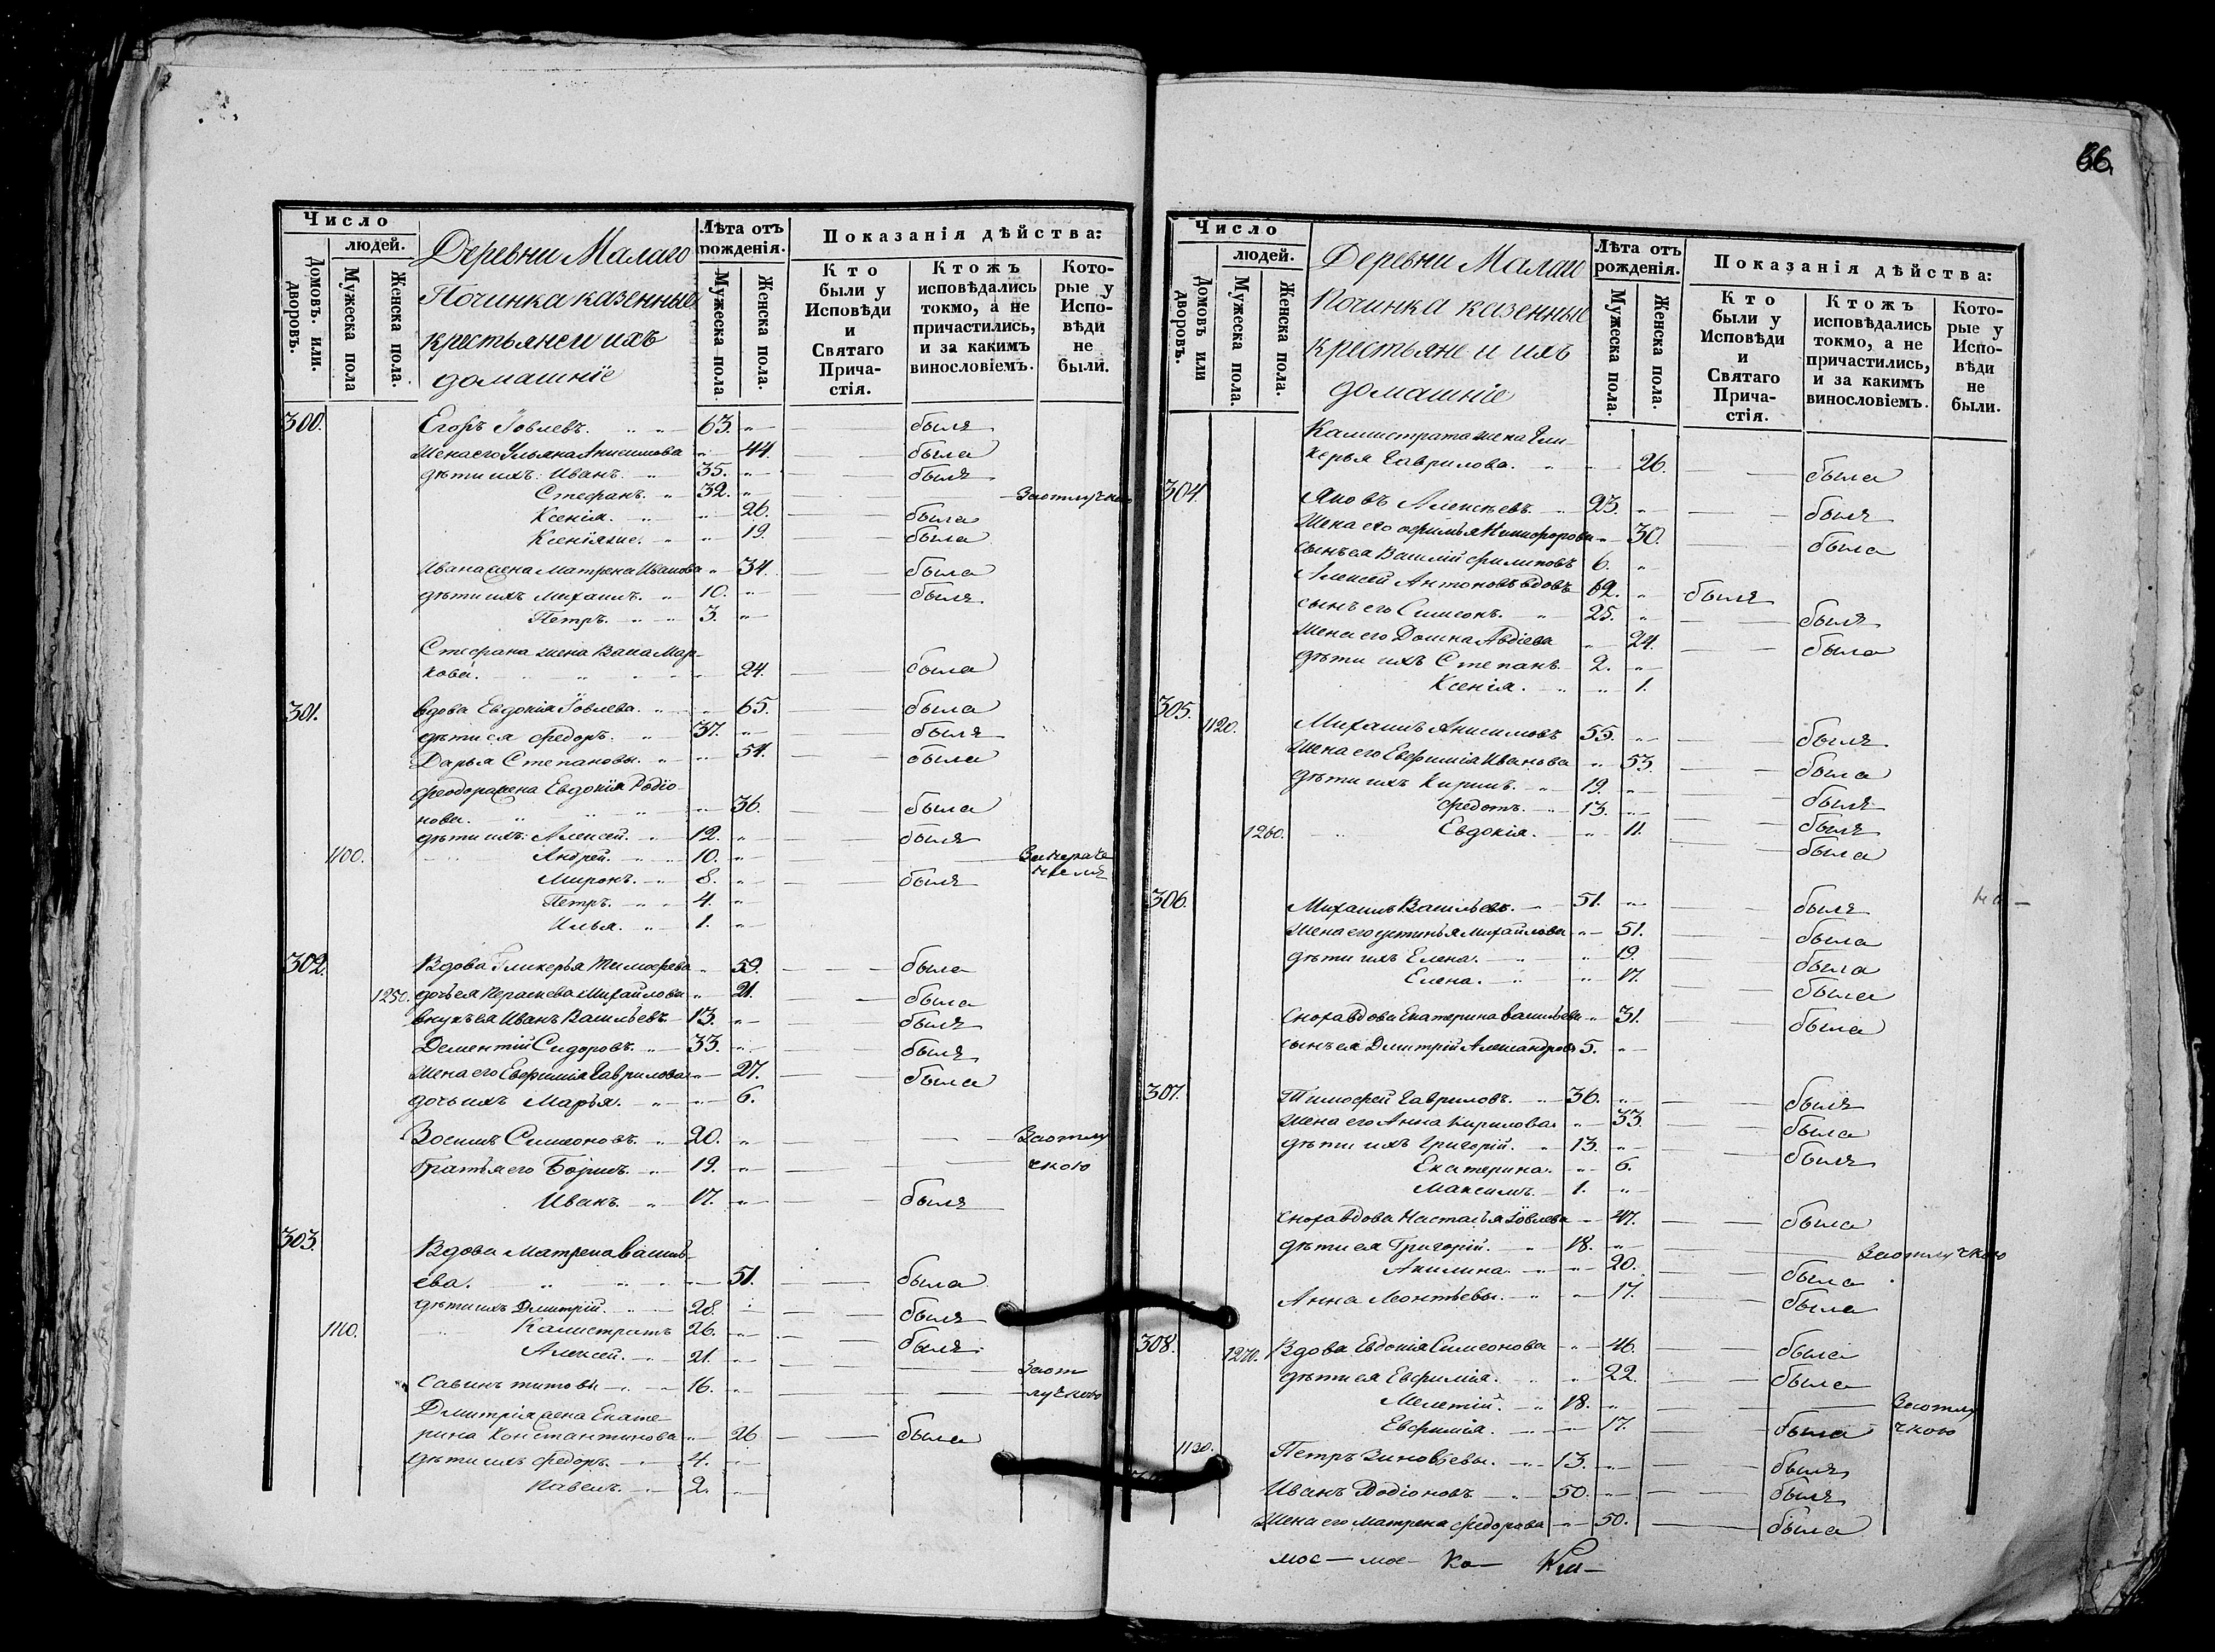 66.
Число
людей.
Домовъ. или. дворовъ.
Мужеска пола
Женска пола.
Деревни Малаго
Починка казенные
крестьяне и ихъ
домашніе
Лѣта отъ рожденія.
Мужеска пола
Женска пола.
Показанія дѣйства:
Кто были у Исповѣди и Святаго Причастія.
Ктожъ исповѣдались токмо, а не причастились, и за какимъ винословіемъ.
Которые у Исповѣди не были.
300. Егоръ Іовлевъ. 63. былъ
Жена его Ульяна Анисимова 44. была
дѣти ихъ: Иванъ. 35. былъ
Стефанъ. 32. За отлучкою
Ксенія. 26. была
Ксенія же. 19. была
Ивана жена Матрена Иванова 34. была
дѣти ихъ Михаилъ. 10. былъ
Петръ. 3.
Стефана жена Васа Мар-
кова. 24. была
301. вдова Евдокія Іовлева. 65. была
дѣти ея Федоръ. 37. былъ
Дарья Степановы. 54. была
Феодора жена Евдокія Родіо-
нова. 36. была
дѣти ихъ: Алексей. 12. былъ
1100. Андрей. 10.
Миронъ. 8. былъ
Петръ. 4.
Илья. 1.
302. Вдова Гликерья Тимофеева 59. была
1250. дочь ея Парасковья Михайлова 21. была
внукъ ея Иванъ Васильевъ. 13. былъ
Дементій Сидоровъ. 33. былъ
Жена его Евфимія Гаврилова 27. была
дочь ихъ Марья. 6.
Зосимъ Симеоновъ. 20. За отлу
братья его Борисъ. 19. чкою
Иванъ. 17. былъ
303. Вдова Матрена Василь-
ева. 51. была
дѣти ихъ Дмитрій. 28. былъ
1110. Калистратъ 26. былъ
Алексей. 21. За от
Савинъ Титовы 16. лучкою
Дмитрія жена Екате-
рина Константинова 26 была
дѣти ихъ Федоръ. 4.
Павелъ. 2.
Число
людей.
Домовъ или дворовъ.
Мужеска пола.
Женска пола.
Деревни Малаго
Починка казенные
крестьяне и ихъ
домашніе
Лѣта отъ рожденія.
Мужеска пола.
Женска пола.
Показанія дѣйства:
Кто были у Исповѣди и Святаго Причастія.
Ктожъ исповѣдались токмо, а не причастились, и за какимъ винословіемъ.
Которые у Исповѣди не были.
Калистрата жена Гли-
керья Гаврилова. 26. была
304. Яковъ Алексеевъ. 23. былъ
Жена его Офимья Никифорова 30. была
сынъ ея Василій Филиповъ 6.
Алексей Антоновъ вдовъ 62. былъ
сынъ его Симеонъ. 25. былъ
Жена его Домна Авдіева 24. была
дѣти ихъ Степанъ 2.
Ксенія. 1.
305. 1120. Михаилъ Анисимовъ 55. былъ
Жена его Евфимія Иванова 53. была
дѣти ихъ Кирилъ. 19. былъ
Федотъ. 13. былъ
1260. Евдокія. 11. была
306. Михаилъ Васильевъ. 51. былъ
Жена его Устинья Михайлова 51. была
дѣти ихъ Елена. 19. была
Елена. 17. была
Сноха вдова Екатерина Васильева 31. была
сынъ ея Дмитрій Александровъ 5.
307. Тимофей Гавриловъ. 36. былъ
Жена его Анна Кирилова 33. была
дѣти ихъ Григорій. 13. былъ
Екатерина. 6.
Максимъ. 1.
Сноха вдова Настасья Іовлева 47. была
дѣти ея Григорій. 18. За отлучкою
Акилина. 20. была
Анна Леонтьевы. 17. была
308. 1270. Вдова Евдокія Симеонова 46. была
дѣти ея Евфимія. 22. была
Мелетій. 18. За отлу
Евфимія. 17. была чкою
1130. Петръ Зиновьевы. 13. былъ
Иванъ Родіоновъ. 50. былъ
Жена его Матрена Федорова 50. была